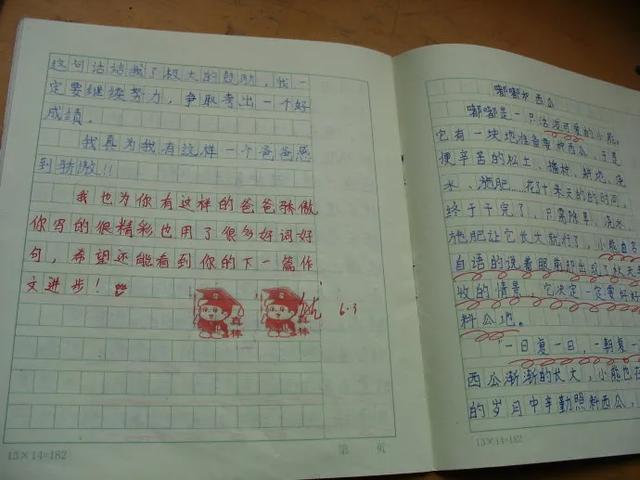 这句话给我了极大的鼓励，我一
定要继续努力，争取考出一个好
成绩。
我真为我有这样一个爸爸感
到骄傲!!
我也为你有这样的爸爸骄傲
你写的很精彩也用了很多好词好
句，希望还能看到你的下一篇作
文进步！
真棒
真棒
优 6.3
13×14=182
第 页
嘟嘟种西瓜
嘟嘟是一只活泼可爱的小熊，
它有一块地准备要种西瓜，于是
便辛苦的松土、播种、耕地、浇
水、施肥……花了十来天的时间，
终于干完了，只需除草、浇水、
施肥让它长大就行了，小熊自言
自语的说着眼前却出现了秋天丰
收的情景，它决定一定要好好
料瓜地。
一日复一日，一朝复一
西瓜渐渐的长大，小熊也在
的岁月中辛勤照料西瓜，
13×14=182